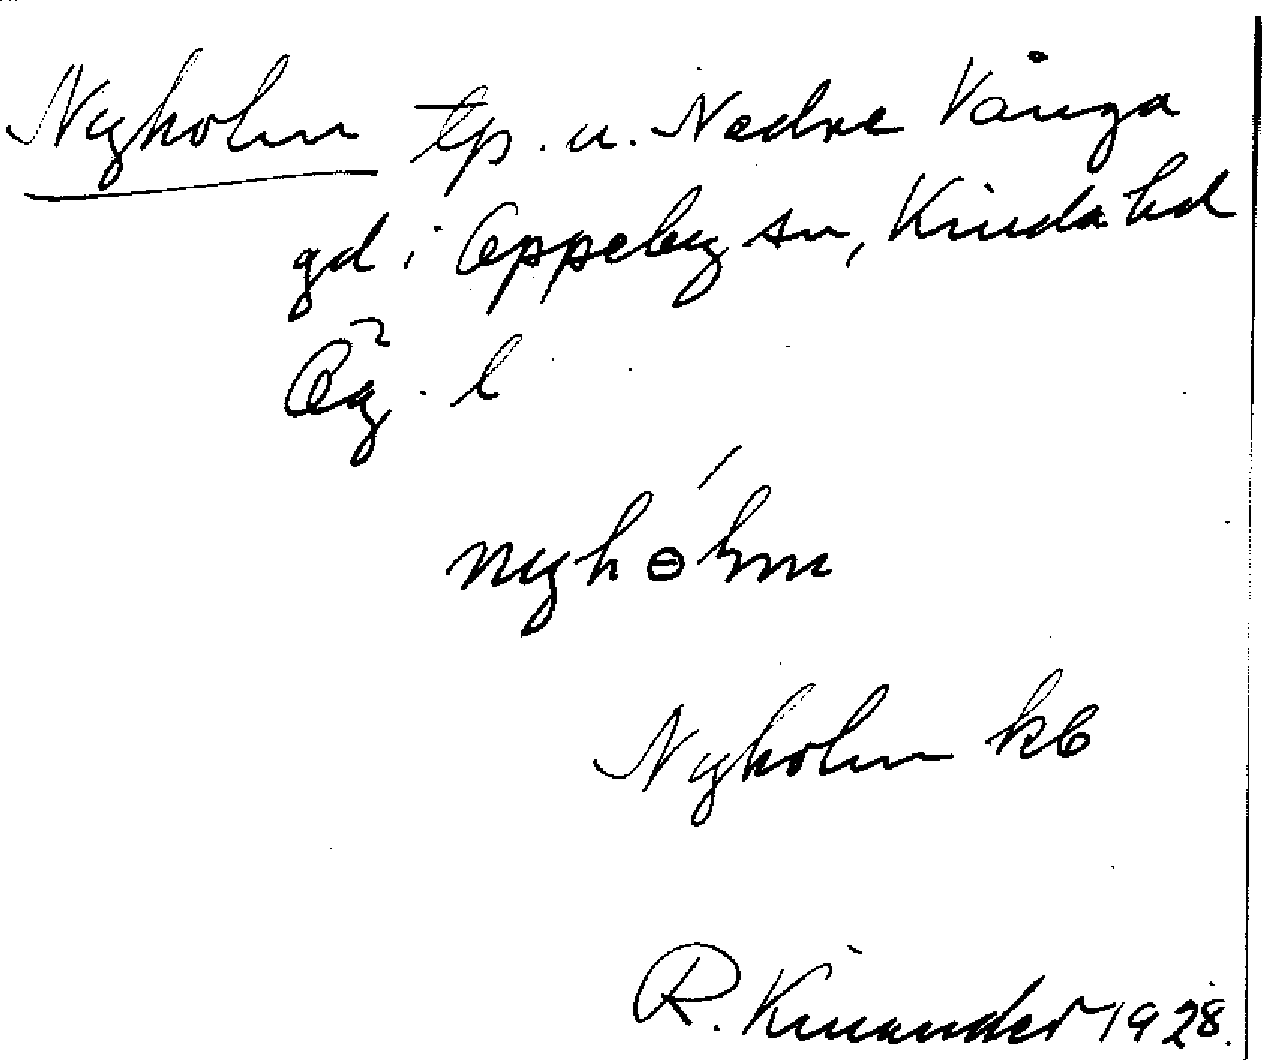 Nyholm tp. u. Nedre Vånga
gd i Oppeby sn, Kinda hd
Ög. l
nyhɵ́lm
Nyholm kb
R. Kinander 1928.